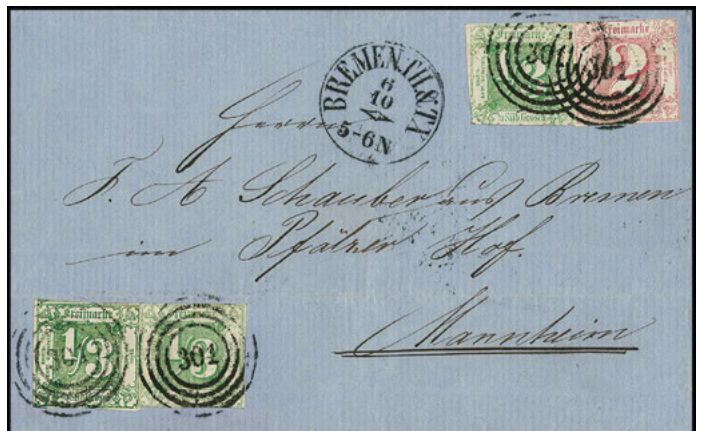 BREMEN.TH&TX
6
10
5-6N
Freimarke
301
Freimarke
2
301
Herrn
F. A Schauber aus Bremen
im Pfälzer Hof.
Mannheim
Freimarke
1/3
Freimarke
1/3
301